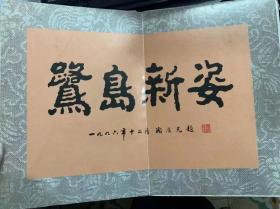 鷺島新姿
一九八六年十二月